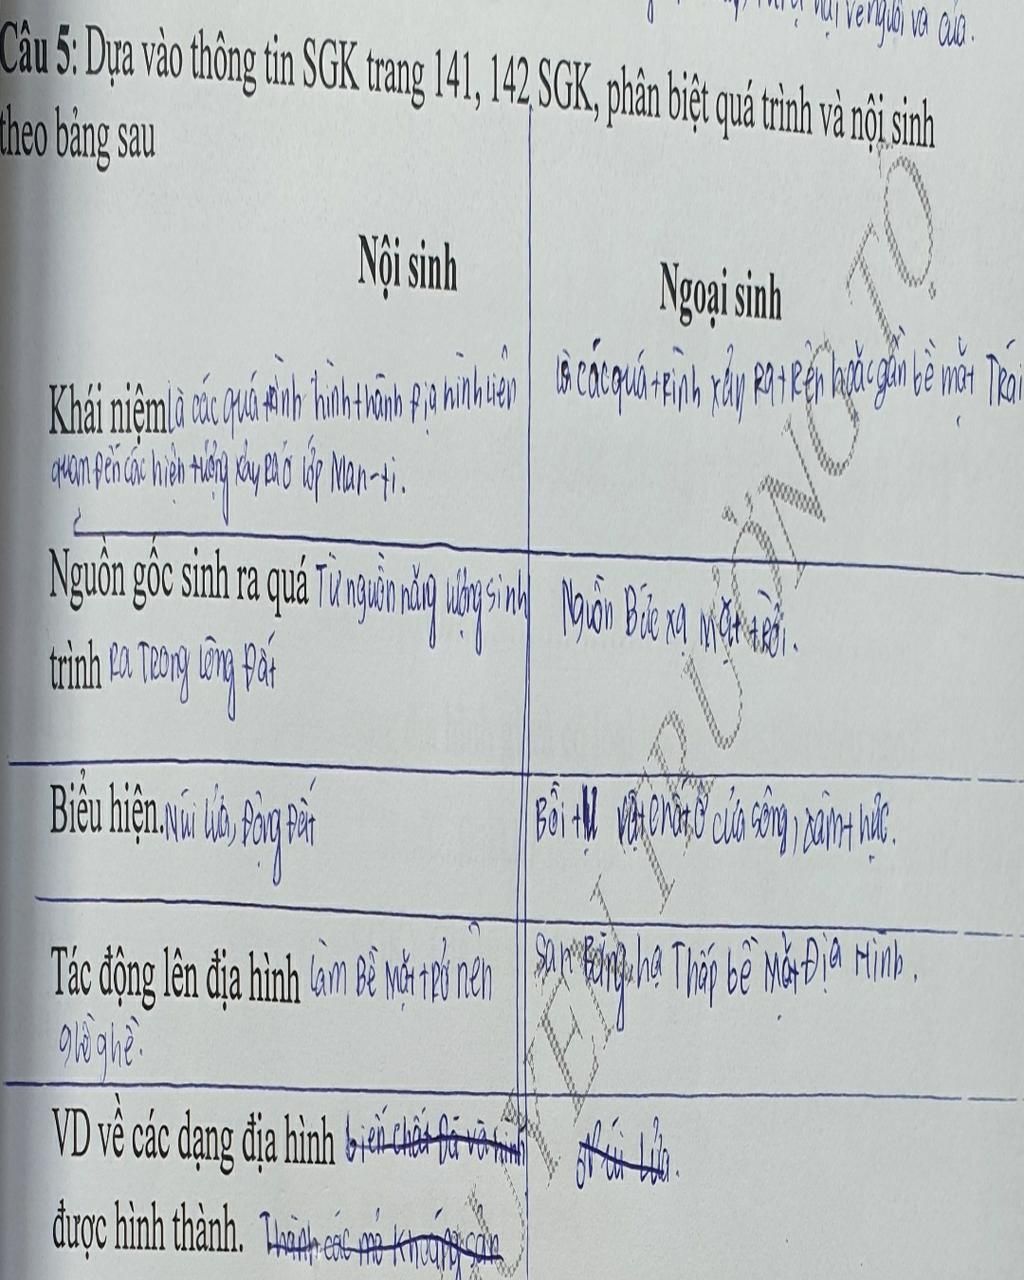 về người và của.
Câu 5: Dựa vào thông tin SGK trang 141, 142 SGK, phân biệt quá trình và nội sinh
theo bảng sau
Nội sinh
Ngoại sinh
Khái niệm là các quá trình hình thành Địa hình liên
quan Đến các hiện tượng xảy Ra ở lớp Man-ti.
là các quá trình xảy Ra trên hoặc gần bề mặt Trái
Nguồn gốc sinh ra quá Từ nguồn năng lượng sinh
trình Ra Trong lòng Đất
Nguồn Bức xạ Mặt trời.
Biểu hiện. Núi lửa, Động Đất
Bồi tụ vật chất ở cửa sông, xâm thực.
Tác động lên địa hình làm Bề Mặt trở nên
ghồ ghề.
San Bằng hạ Thấp bề Mặt Địa Hình.
VD về các dạng địa hình biến chất Đá và hình
được hình thành. Thành các mỏ khoáng sản
Núi Lửa.